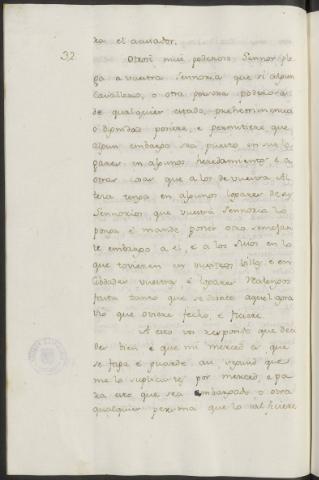 ra el acusador.
32 Otrosi mui poderoso Sennor ple
ga a vuestra Sennoria que si algun
Cavallero, o otra persona poderosa
de qualquier estado, prehemi­nencia
o dignidad pusiere, e permitiere que
algun embargo sea puesto en sus lo
gares en algunos heredamientos, e a
otras cosas que a los de vuestra Al
teza tenga en algunos logares de sus
Sennorios que vuestra Sennoria lo
ponga e mande poner otro semejan
te embargo a el, e a los suios en lo
que tovieren en vuestras Villas e en
Cibdades vuestras e logares Realengos
fasta tanto que se desate aquel agra
vio que oviere fecho, e ficiere.
A esto vos respondo que deci
des bien e que mi merced es que
se faga e guarde asi segund que
me lo suplicastes por merced, e pa
ra esto que sea embargado o otra
qualquier persona que lo tal ficiere